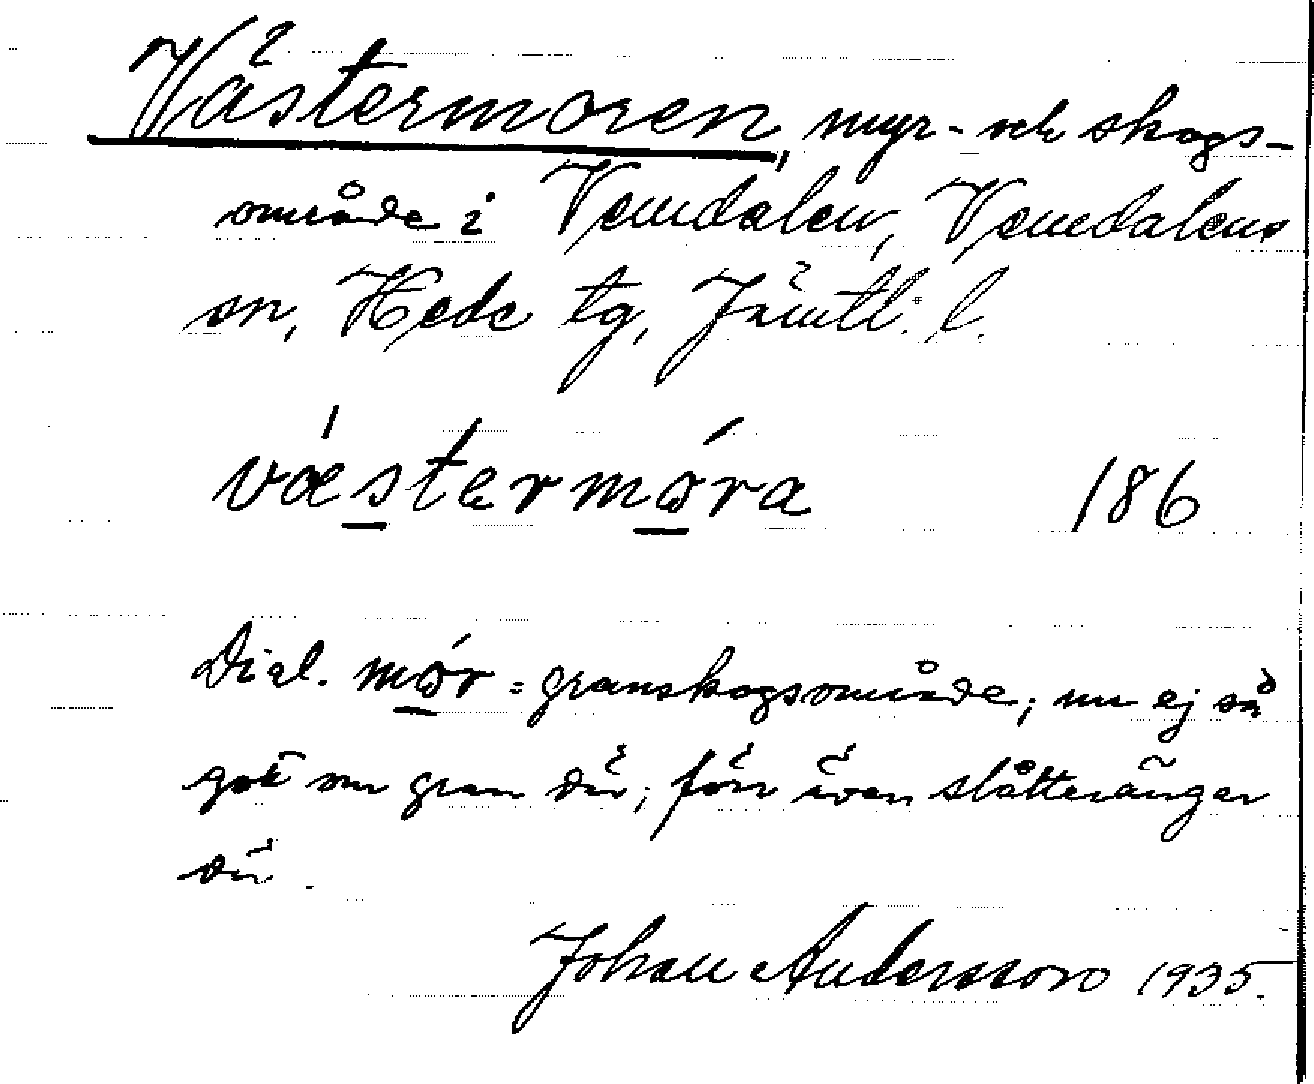 Västermoren, myr- och skogs-
område i Vemdalen, Vemdalens
sn, Hede tg, Jämtl. l.
væstermóra 186
Dial. mór = granskogsområde; nu ej så
gott om gran där; förr även slåtterängar
där.
Johan Andersson 1935.